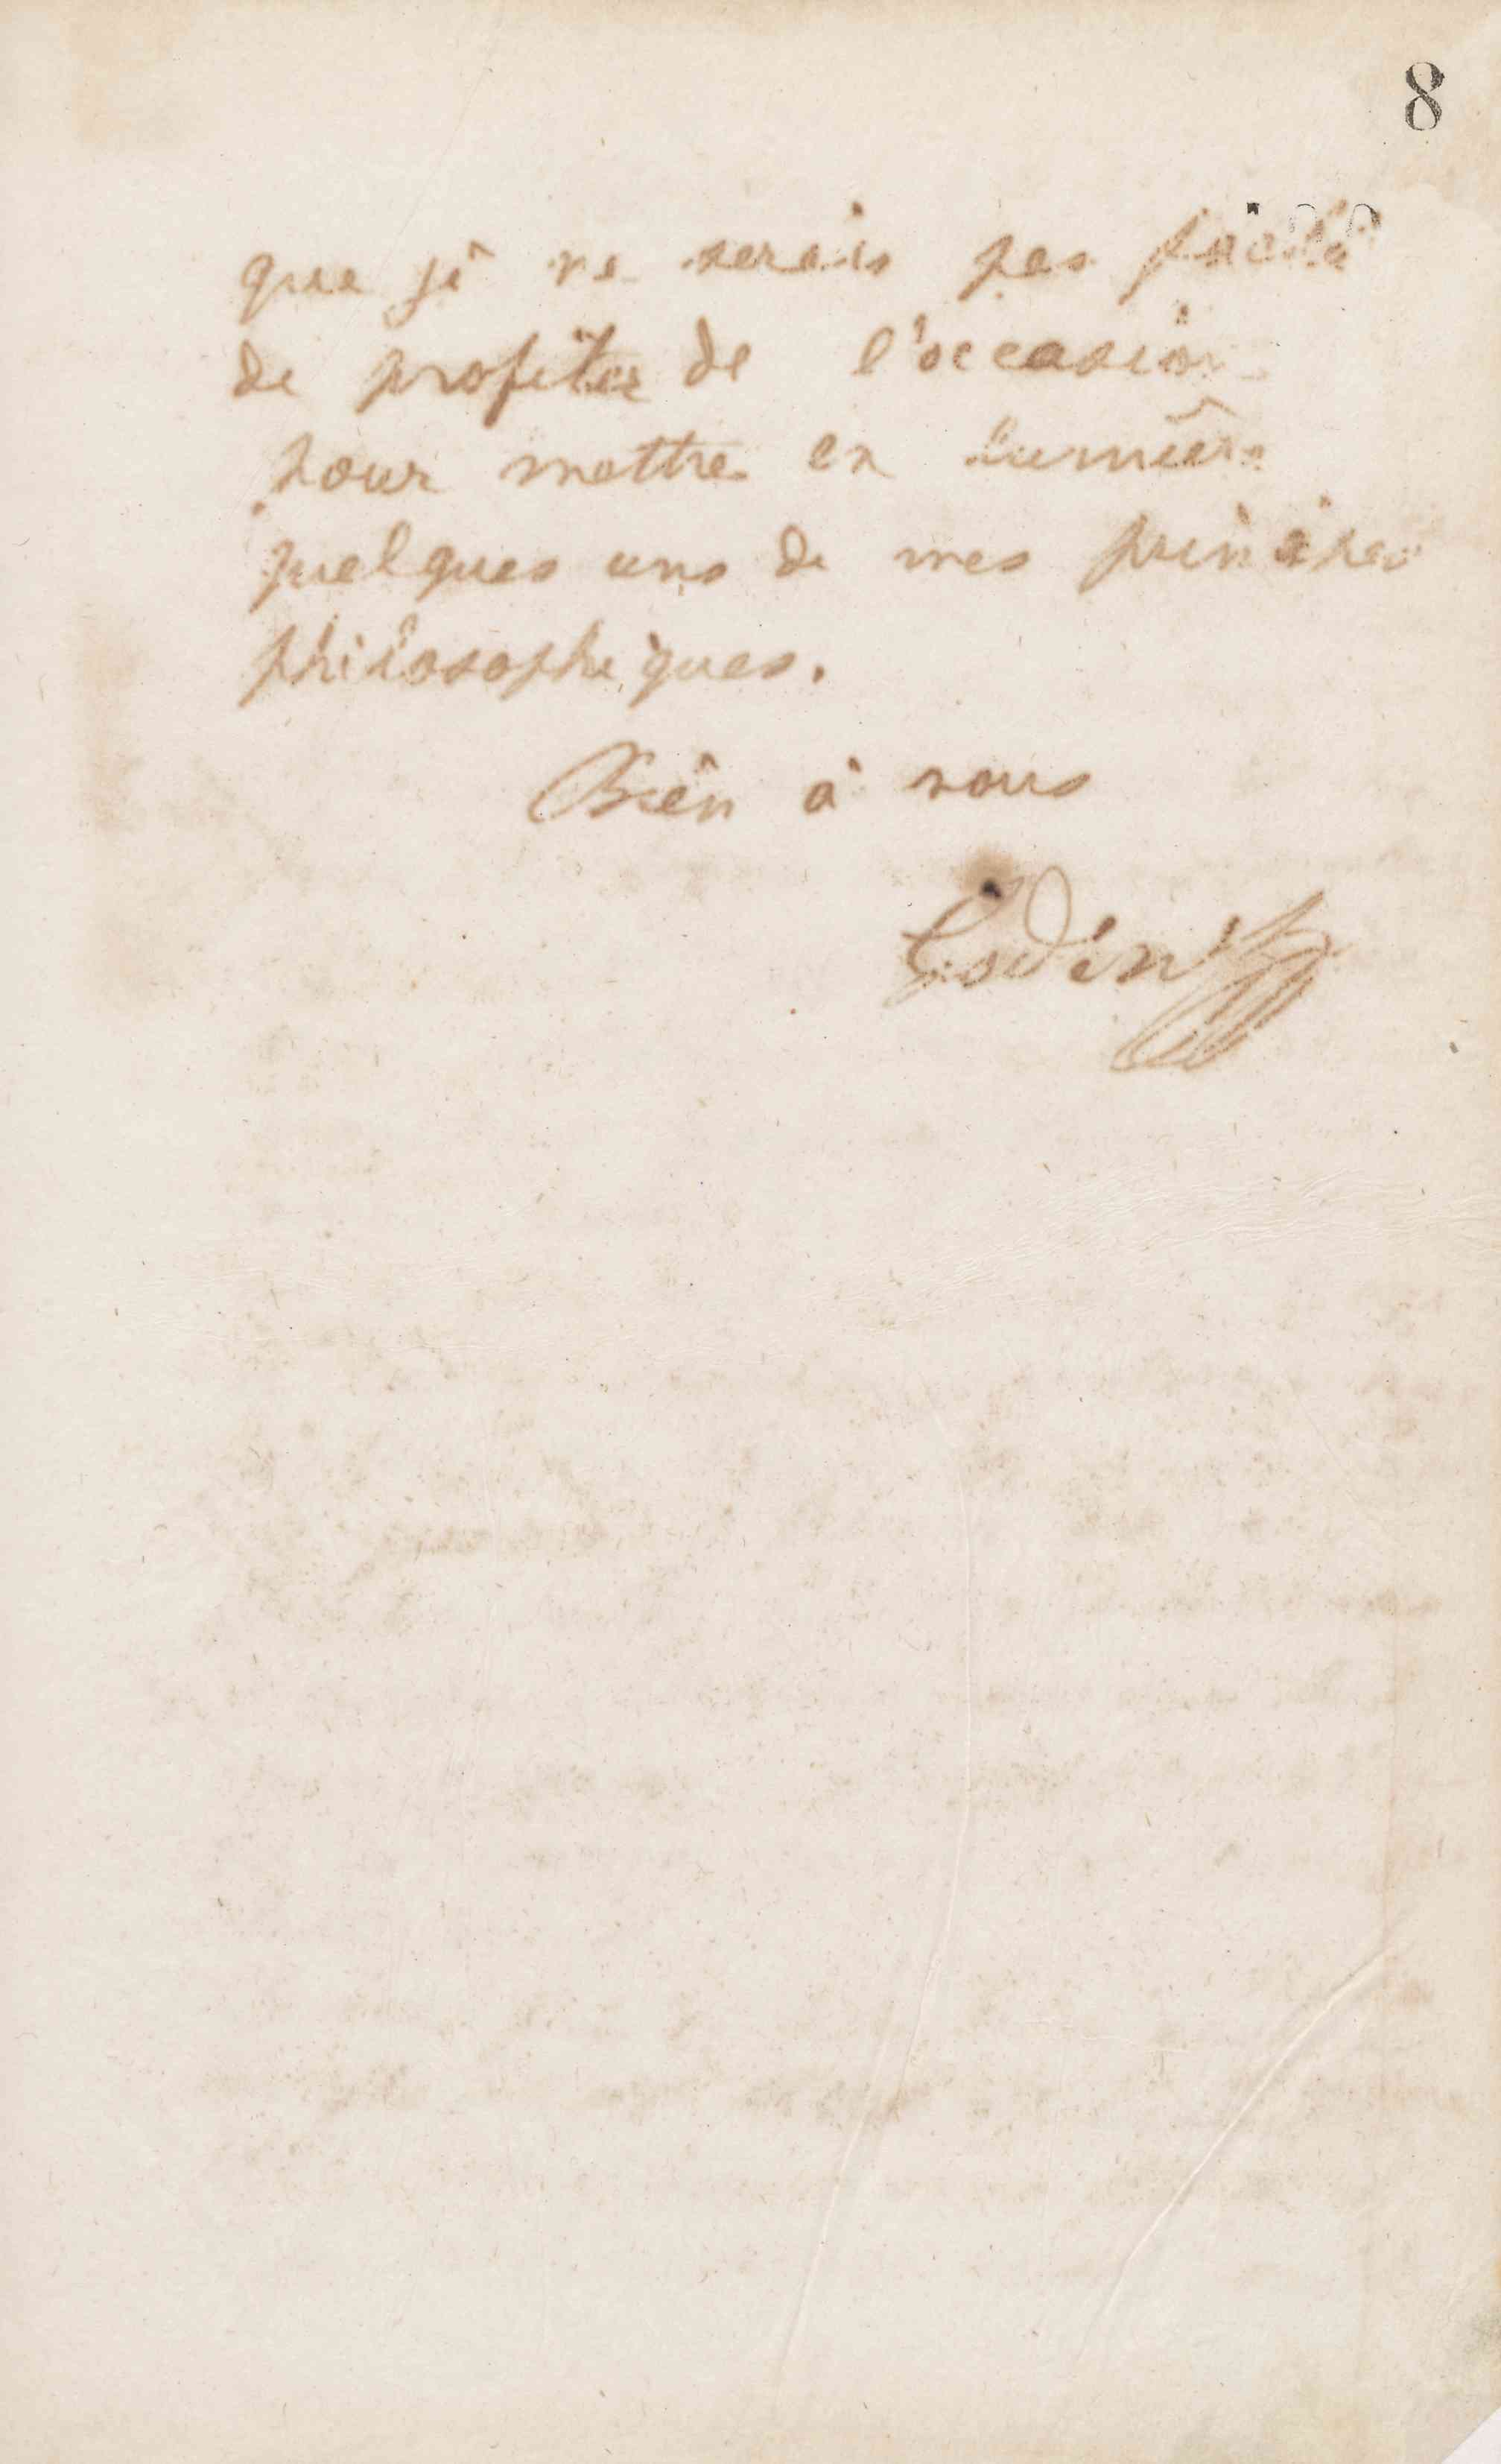 8
que je ne serais pas fâché
de profiter de l'occasion
pour mettre en lumière
quelques uns de mes principes
philosophiques.
Bien à vous
Godin